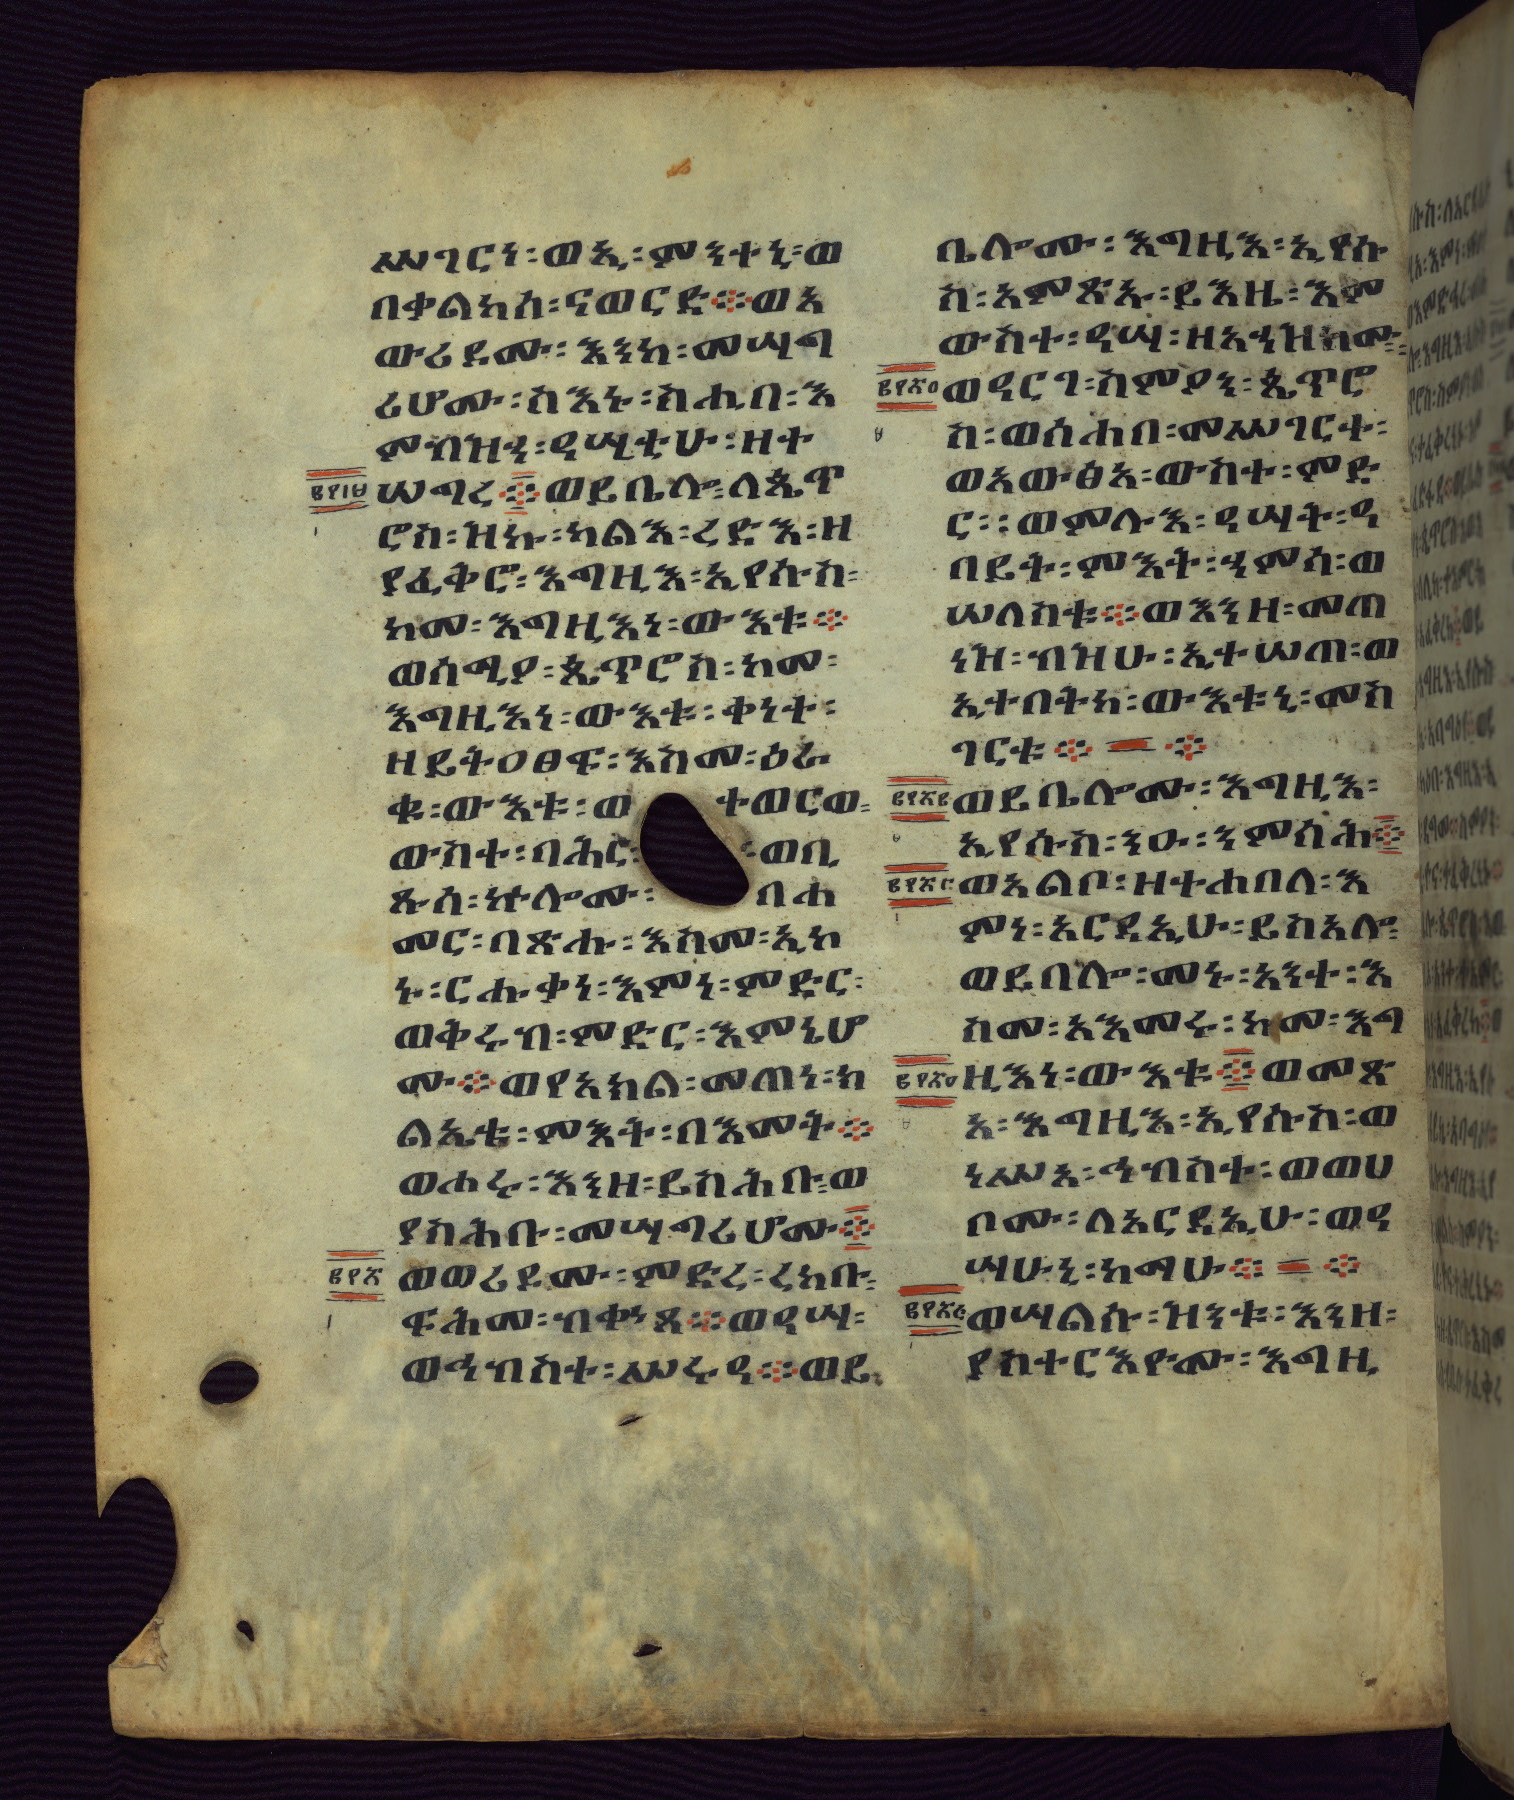 ሥገርነ፡ወኢ፡ምንተኒ፡ወ
በቀልክሰ፡ናወርድ፨ወአ
ውረደሙ፡እንከ፡መሣግ
ሪሆሙ፡ስእኑ፡ስሒበ፡እ
ምብዝኃ፡ዓሣቲሁ፡ዘተ
፪፻፲፱
ሠግረ፨ወይቤሎ፡ለጴጥ
ሮስ፡ዝኩ፡ካልእ፡ረድእ፡ዘ
ያፈቅሮ፡እግዚእ፡ኢየሱስ፡
ከመ፡እግዚእነ፡ውእቱ፨
ወሰሚዖ፡ጴጥሮስ፡ከመ፡
እግዚእነ፡ውእቱ፡ቀነተ፡
ዘይትዐፀፍ፡እስመ፡ዕራ
ቁ፡ውእቱ፡ወተወርወ፡
ውስተ፡ባሕር፡ወቢ
ጹሰ፡ኵሎሙ፡በሐ
መር፡በጽሑ፡እስመ፡ኢኮ
ኑ፡ርሑቀነ፡እምነ፡ምድር፡
ወቅሩብ፡ምድር፡እምኔሆ
ሙ፨ወየአክል፡መጠነ፡ክ
ልኤቱ፡ምእት፡በእመት፨
ወሖሩ፡እንዘ፡ይስሕቡ፡ወ
ያስሕቡ፡መሣግሪሆሙ፨
፪፻፳
ወወሪዶሙ፡ምድረ፡ረከቡ፡
ፍሕመ፡ብቀነጸ፨ወዓሣ፡
ወኅብስተ፡ሥሩዓ፨ወይ
ቤሎሙ፡እግዚእ፡ኢየሱ
ስ፡አምጽኡ፡ይእዜ፡እም
ውስተ፡ዓሣ፡ዘአኀዝክሙ፡
፪፻፳፬
ወዓርገ፡ስምዖን፡ጴጥሮ
ስ፡ወሰሐበ፡መሥገርተ፡
ወአውፅአ፡ውስተ፡ምድ
ር፡፡ወምሉእ፡ዓሣት፡ዓ
በይት፡ምእት፡ኃምሳ፡ወ
ሠለስቱ፨ወእንዘ፡መጠ
ነዝ፡ብዝሁ፡ኢተሠጠ፡ወ
ኢተበትከ፡ውእቱኒ፡መስ
ገርቱ፨
፪፻፳፪
ወይቤሎሙ፡እግዚእ፡
ኢየሱስ፡ንዑ፡ንምሳሕ፨
፪፻፳፫
ወአልቦ፡ዘተሐበለ፡እ
ምነ፡አርዳኢሁ፡ይስአሎ፡
ወይበሎ፡መኑ፡አንተ፡እ
ስመ፡አእመሩ፡ከመ፡እግ
፪፻፳፬
ዚእነ፡ውእቱ፨ወመጽ
አ፡እግዚእ፡ኢየሱስ፡ወ
ነሥአ፡ኅብስተ፡ወወሀ
ቦሙ፡ለአርዳኢሁ፡ወዓ
ሣሁኒ፡ከማሁ፨
፪፻፳፭
ወሣልሱ፡ዝንቱ፡እንዘ፡
ያስተርእዮሙ፡እግዚ